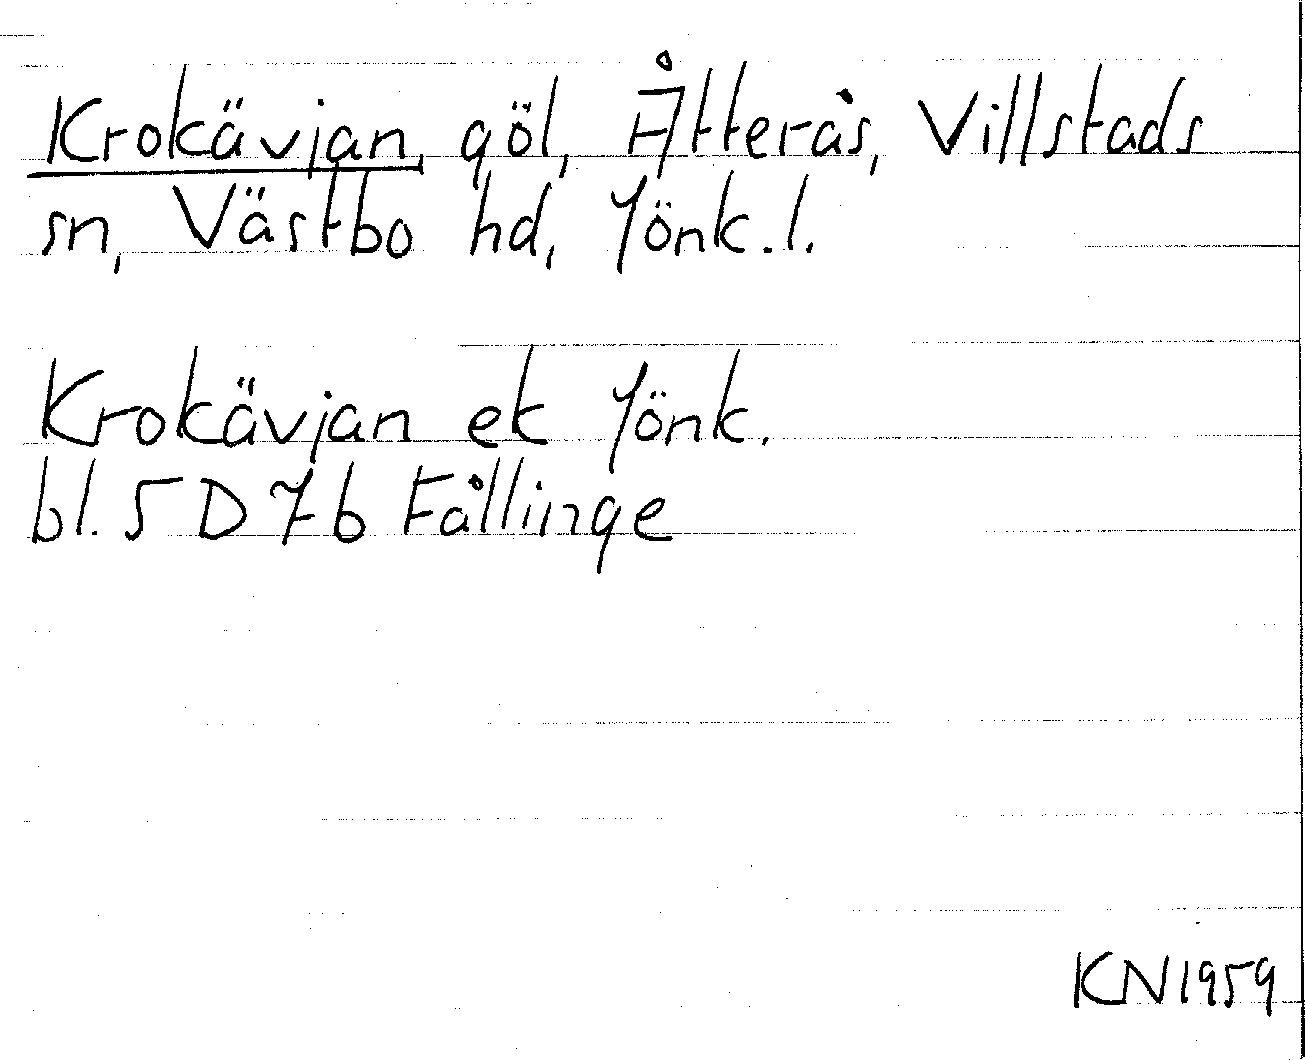 Krokävjan, göl, Åtterås, Villstads
sn, Västbo hd, Jönk.l.
Krokävjan ek Jönk.
bl. 5 D 7b Fållinge
KN1959